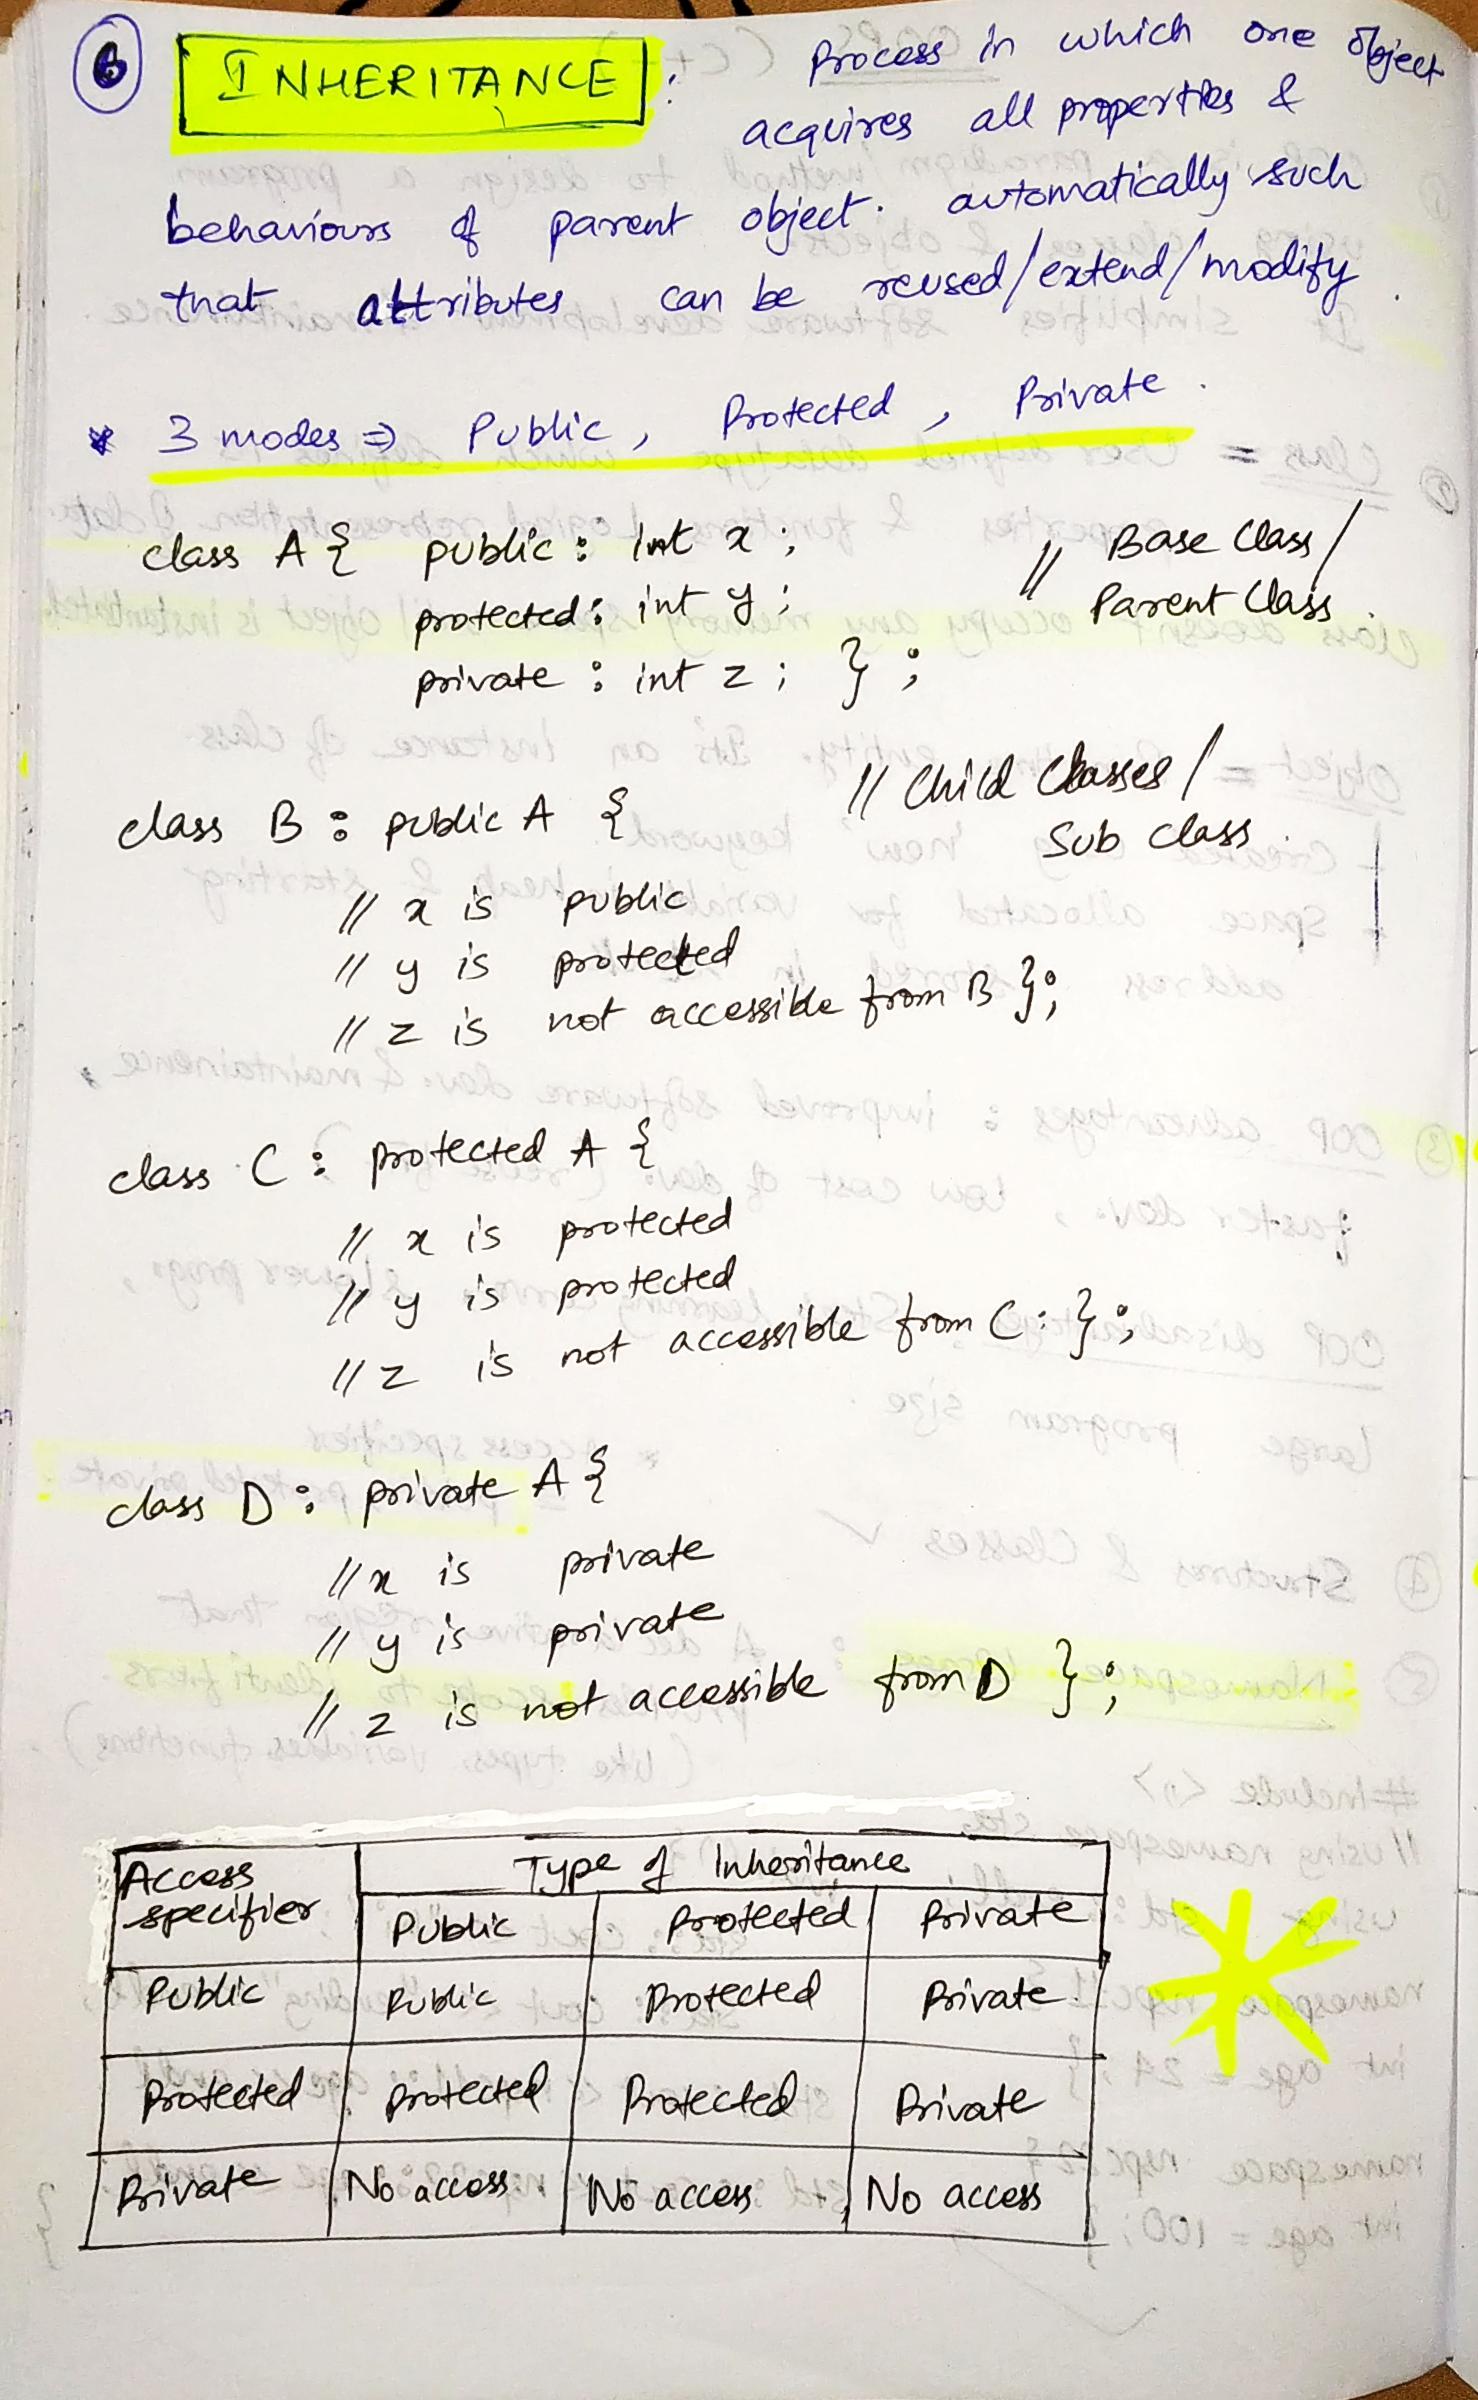 6 INHERITANCE : Process in which one object
acquires all properties &
behaviours of parent object. automatically such
that attributes can be reused/extend/modify.
* 3 modes => Public, Protected, Private.
class A { public : int x ; // Base Class /
protected : int y ; Parent Class.
private : int z ; } ;
class B : public A { // Child Classes /
Sub class.
// x is public
// y is protected
// z is not accessible from B } ;
class C : protected A {
// x is protected
// y is protected
// z is not accessible from C : } ;
class D : private A {
// x is private
// y is private
// z is not accessible from D } ;
Access Type of Inheritance
specifier Public Protected Private
Public Public Protected Private
Protected Protected Protected Private
Private No access No access No access